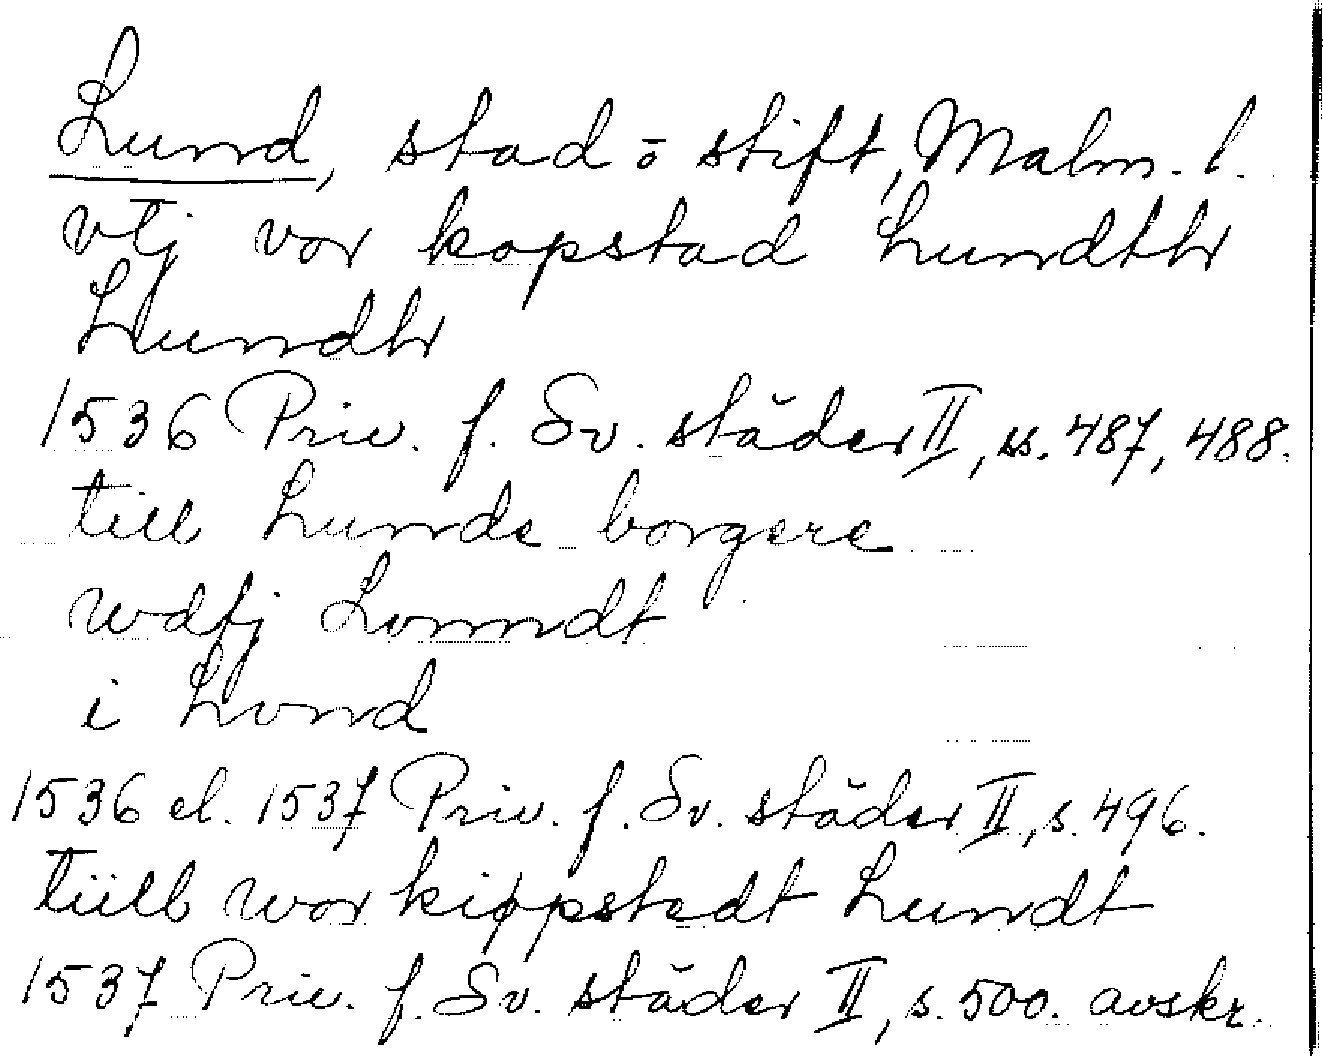 Lund, stad o stift, Malm. l.
vtj vor kopstad Lundthr
Lundhr
1536 Priv. f. Sv. städer II, ss. 487, 488.
till Lunde borgere
wdtj Lonndt
i Lund
1536 el. 1537 Priv. f. Sv. städer II, s. 496.
tiill wor kippstedt Lundt
1537 Priv. f. Sv. städer II, s. 500. avskr.